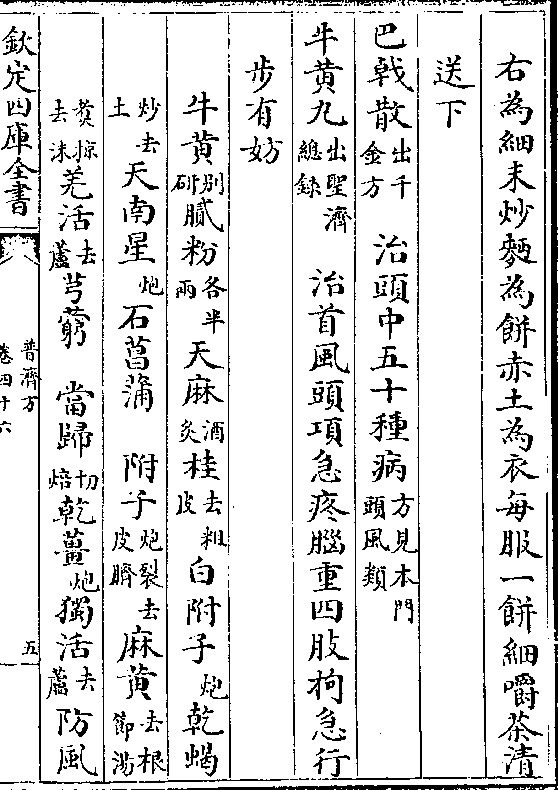 右為細末炒麪為餅赤土為衣每服一餅細嚼茶清
送下
巴戟散出千金方　治頭中五十種病方見本門頭風類
牛黄丸出聖濟總録　治首風頭項急疼腦重四肢拘急行
步有妨
牛黄别研膩粉各半兩天麻酒炙桂去粗皮白附子炮乾蝎
炒去土天南星炮石菖蒲　附子炮裂去皮臍麻黄去根節湯
煑掠去沫羌活去蘆芎藭　當歸切焙乾薑炮獨活去蘆防風
欽定四庫全書
普濟方
卷四十六
五